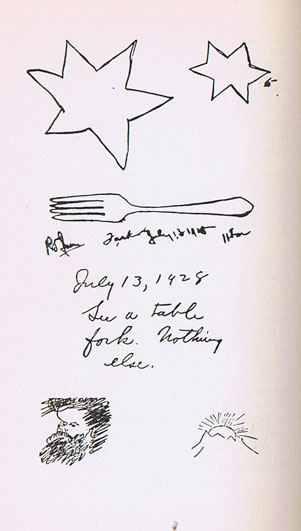 6-
Fork July 13 1928
July 13, 1928
See a table
fork. Nothing
else.